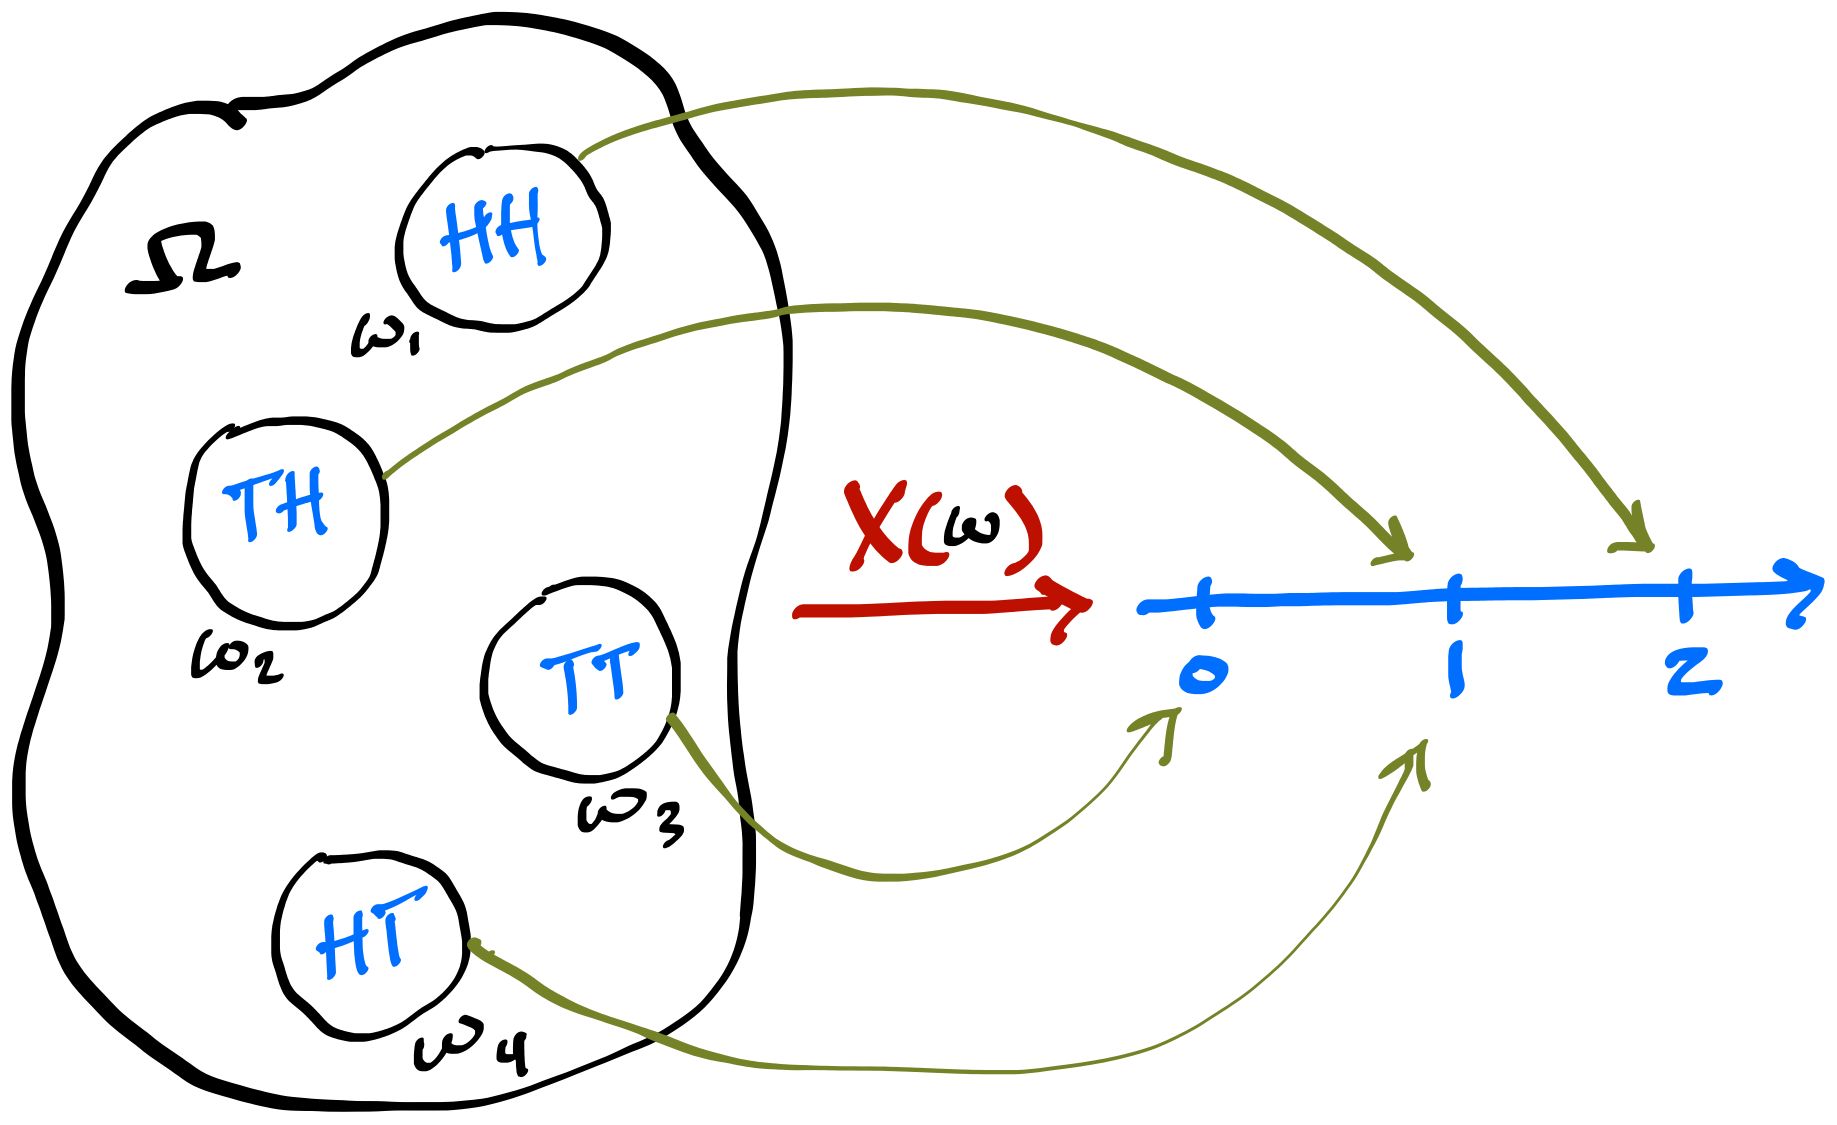 Ω
HH
ω₁
TH
ω₂
TT
ω₃
HT
ω₄
X(ω)
0 1 2